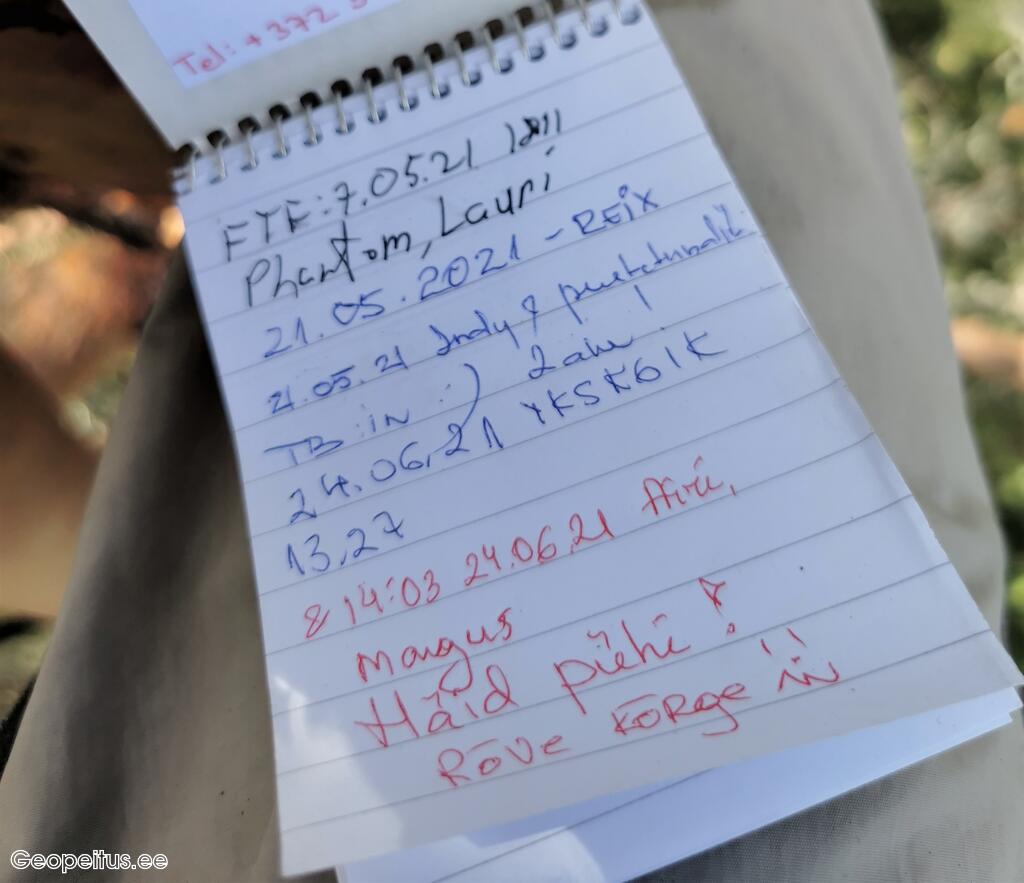 Tel: +372
FTF: 7.05.21 1811
Phantom, Lauri
21.05.2021 - REiX
21.05.21 Indy &
TB in :)
24.06.21 YKSKÕIK
13.27
& 14:03 24.06.21
Margus
Häid pühi!
RÕVE KÕRGE
Geopeitus.ee